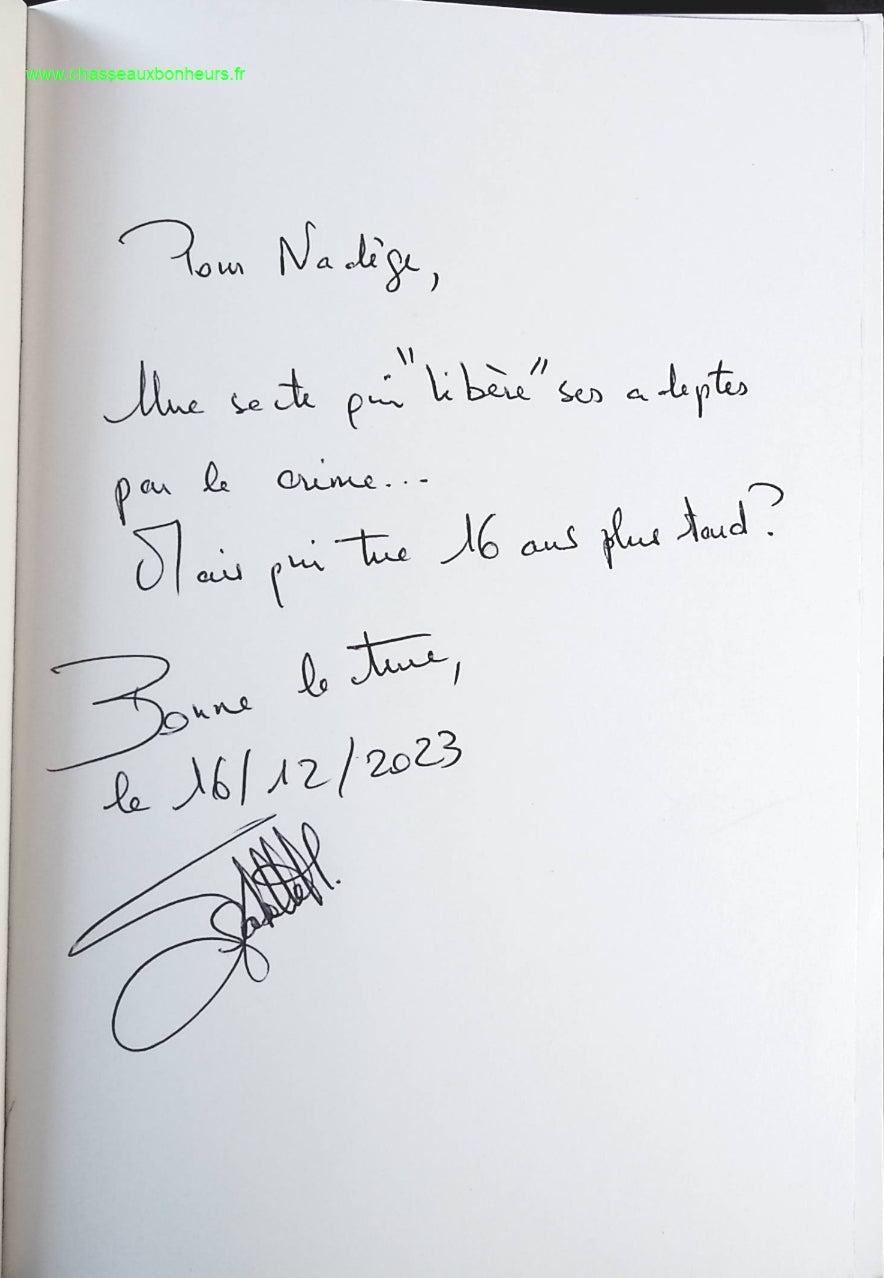 www.chasseauxbonheurs.fr
Pour Nadège,
Une secte qui "libère" ses adeptes
par le crime...
Mais qui tue 16 ans plus tard ?
Bonne lecture,
le 16/12/2023